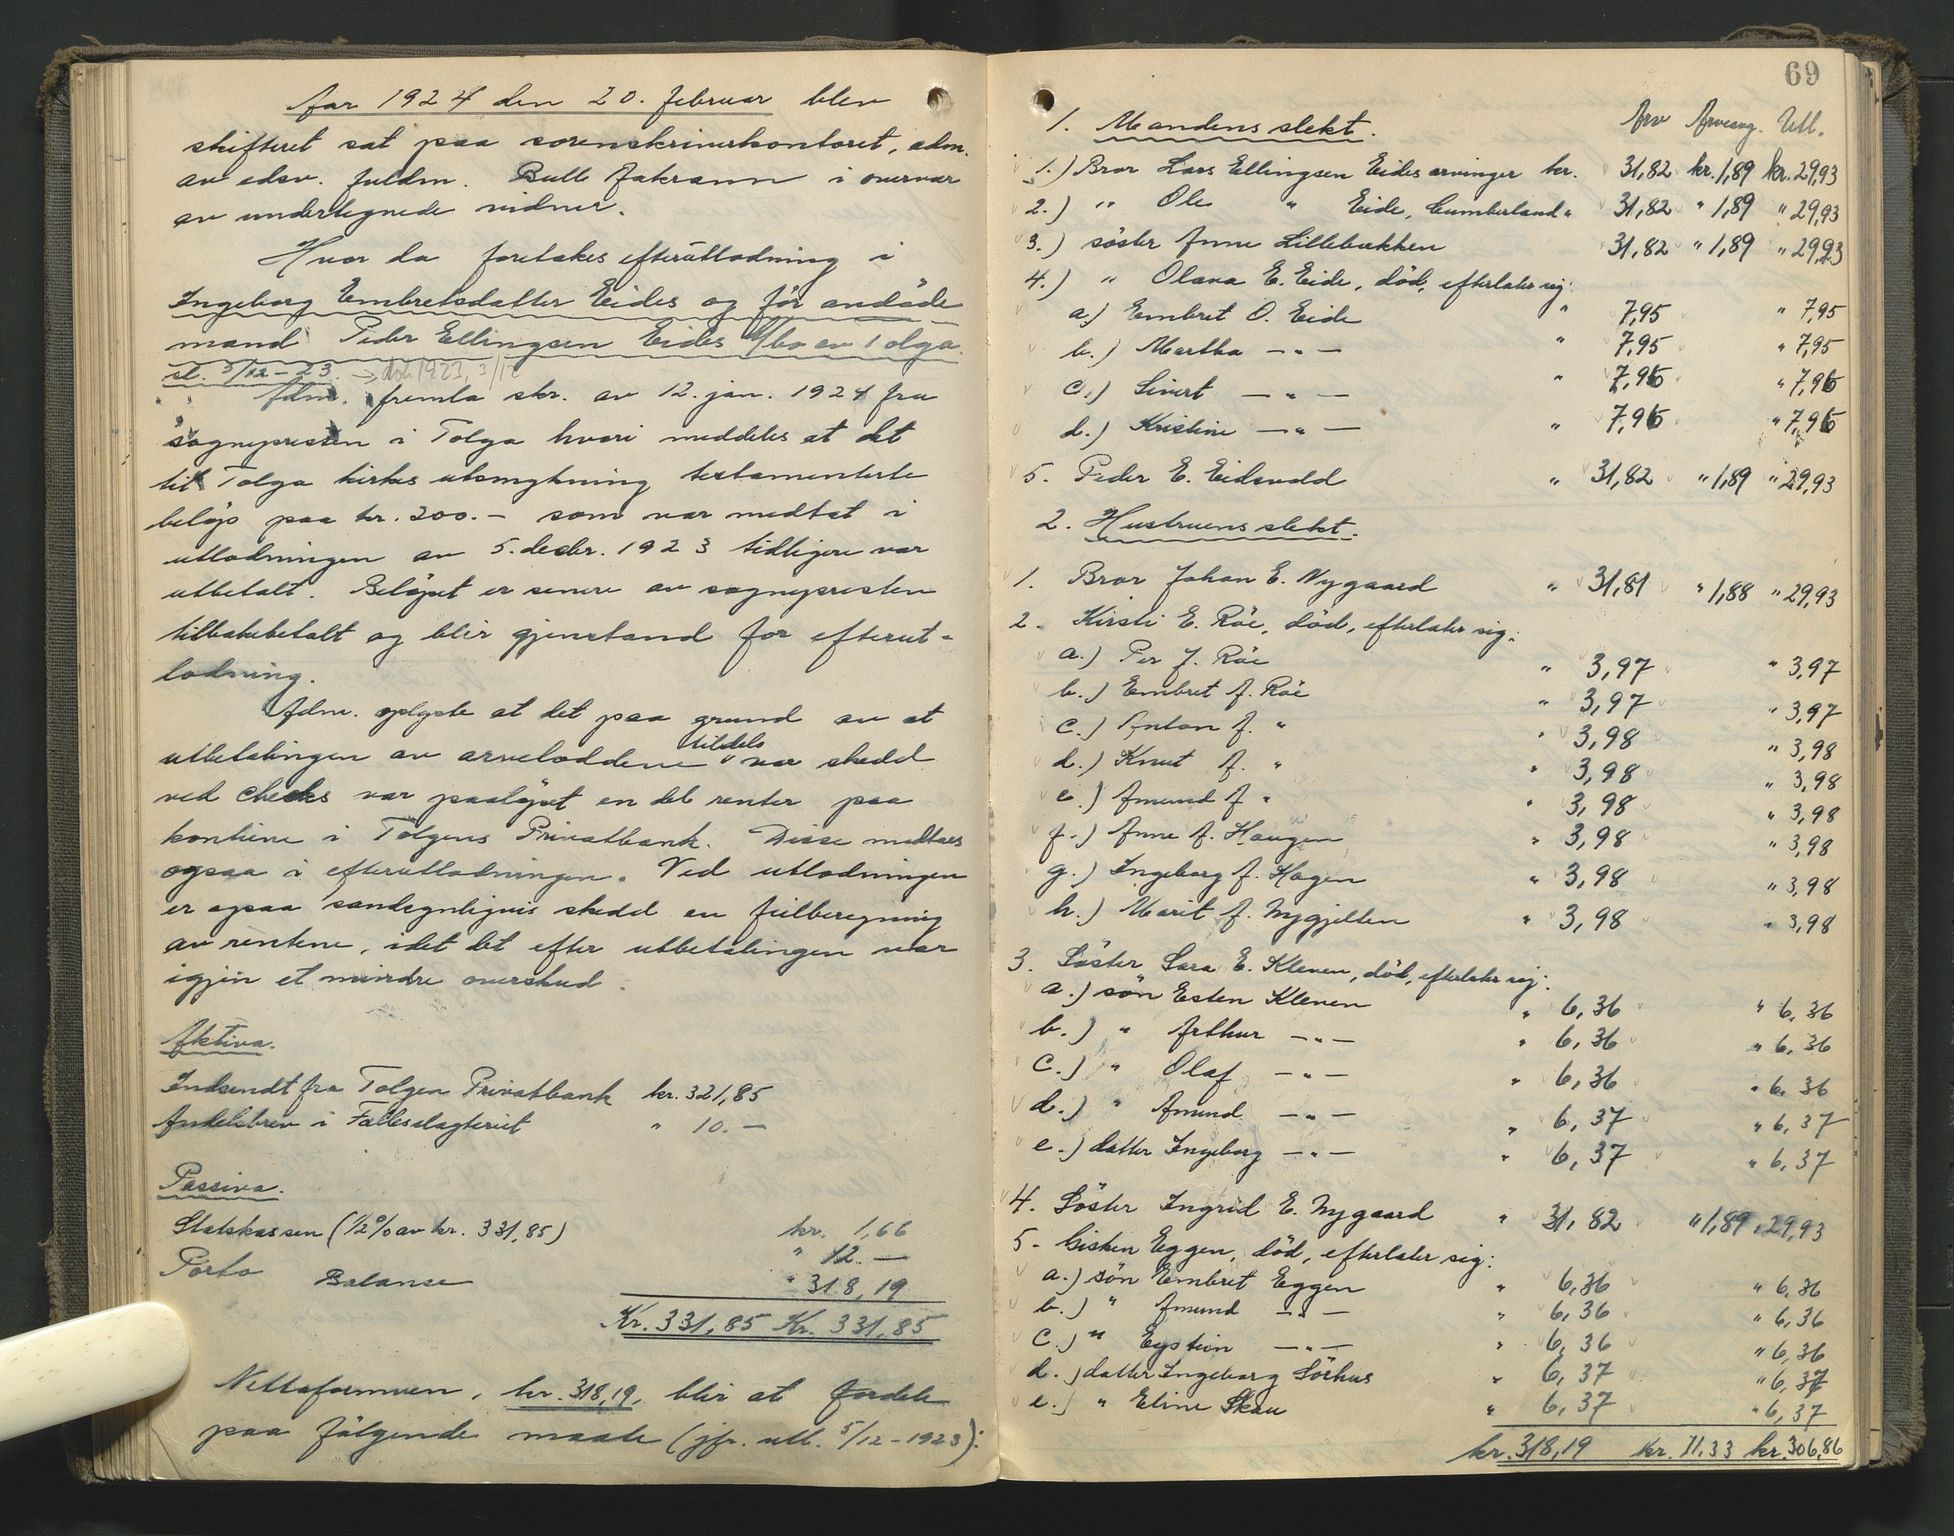 Aar 1924 den 20. februar blev
skifteret sat paa sorenskriverkontoret, adm.
av edsv. fuldm. Bull Aakrann i overvær
av undertegnede vidner.
Hvor da foretokes efterutlodning i
Ingeborg Embretsdatter Eides og før avdøde
mand Peder Ellingsen Eides f/bo av Tolga.
sl. 5/12-23. → død 1923, 3/12
Adm. fremla skr. av 12. jan. 1924 fra
sognepresten i Tolga hvori meddeles at det
til Tolga kirkes utsmykning testamenterte
beløp paa kr. 200.- som var medtat i
utlodningen av 5. desbr. 1923 tidligere var
utbetalt. Beløpet er senere av sognepresten
tilbakebetalt og blir gjenstand for efterut-
lodning.
Adm. oplyste at det paa grund av at
utbetalingen av arveloddene tildels var skedd
ved checks var paaløpet en del renter paa
kontiene i Tolgens Privatbank. Disse medtaes
ogsaa i efterutlodningen. Ved utlodningen
er ogsaa sandsynligvis skedd en feilberegning
av rentene, idet det efter utbetalingen var
igjen et mindre overskud.
Aktiva.
Indsendt fra Tolgen Privatbank kr. 321,85
Andelsbrev i Fællesslagteriet " 10.-
Passiva.
Statskassen (1/2% av kr. 331,85) kr. 1,66
Porto " 12.-
Balanse " 318,19
Kr. 331,85 Kr. 331,85
Nettoformuen, kr. 318,19, blir at fordele
paa følgende maate (jfr. utl. 5/12-1923):
69
Arv Arveavg. Utl.
1. Mandens slekt.
1.) Bror Lars Ellingsen Eides arvinger kr. 31,82 kr. 1,89 kr. 29,93
2.) " Ole " Eide, Cumberland " 31,82 " 1,89 " 29,93
3.) søster Anne Lillebækken 31,82 " 1,89 " 29,93
4.) " Olava E. Eide, død, efterlater sig:
a.) Embret O. Eide " 7,95 " 7,95
b.) Martha -"- " 7,95 " 7,95
c.) Sivert -"- " 7,96 " 7,96
d.) Kristine -"- " 7,96 " 7,96
5. Peder E. Eidsvold " 31,82 " 1,89 " 29,93
2. Hustruens slekt.
1. Bror Johan E. Nygaard " 31,81 " 1,88 " 29,93
2. Kirsti E. Røe, død, efterlater sig:
a.) Per J. Røe " 3,97 " 3,97
b.) Embret A. Røe " 3,97 " 3,97
c.) Anton A. " " 3,98 " 3,98
d.) Knut A. " " 3,98 " 3,98
e.) Amund A " " 3,98 " 3,98
f.) Anne A. Haugen " 3,98 " 3,98
g.) Ingeborg A. Hagen " 3,98 " 3,98
h.) Marit A. Nygjelten " 3,98 " 3,98
3. Søster Sara E. Kleven, død, efterlater sig:
a.) søn Esten Kleven " 6,36 " 6,36
b.) " Arthur -"- " 6,36 " 6,36
c.) " Olaf -"- " 6,36 " 6,36
d.) " Amund -"- " 6,37 " 6,37
e.) datter Ingeborg -"- " 6,37 " 6,37
4. Søster Ingrid E. Nygaard " 31,82 " 1,89 " 29,93
5. Gisken Eggen, død, efterlater sig:
a.) søn Embret Eggen " 6,36 " 6,36
b.) " Amund -"- " 6,36 " 6,36
c.) " Eystein -"- " 6,36 " 6,36
d.) datter Ingeborg Sørhus " 6,37 " 6,37
e.) " Eline Skau " 6,37 " 6,37
kr. 318,19 kr. 11.33 kr. 306,86